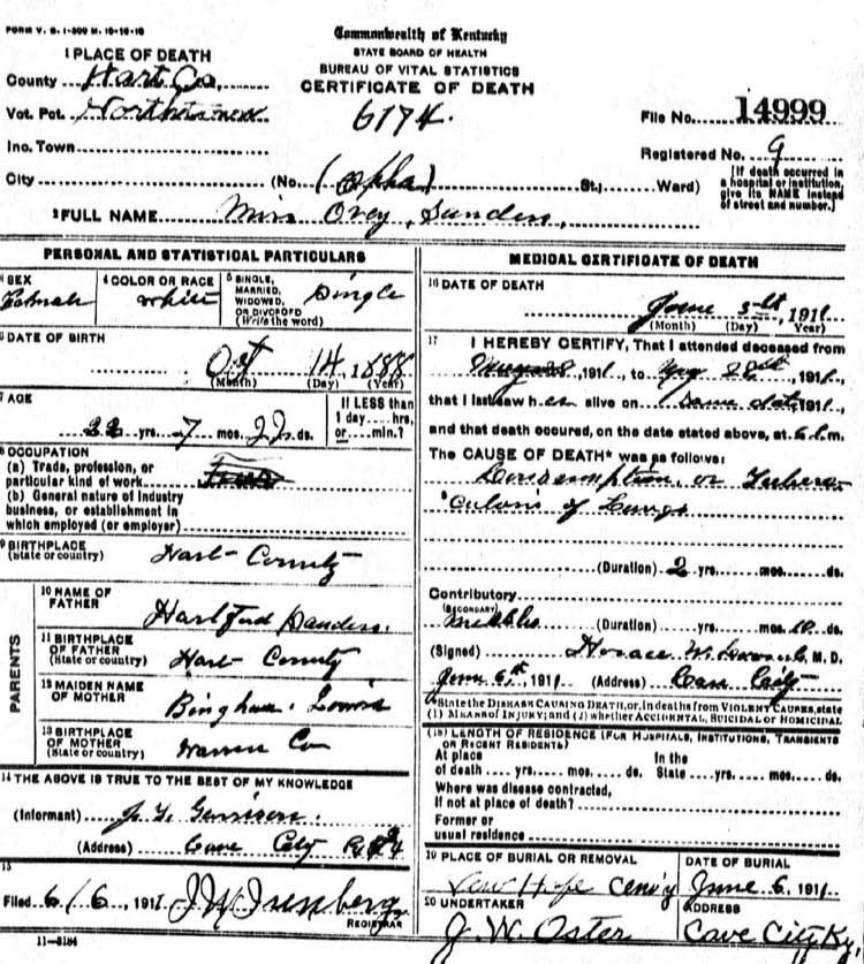 FORM V. S. 1-
Commonwealth of Kentucky
STATE BOARD OF HEALTH
BUREAU OF VITAL STATISTICS
CERTIFICATE OF DEATH
1 PLACE OF DEATH
County Hart Co,
Vot. Pct.
6174.
File No. 14999
Inc. Town
Registered No. 9
City (No. St.; Ward)
[If death occurred in
a hospital or institution,
give its NAME instead
of street and number.]
2 FULL NAME Miss Ovey, Sanders,
PERSONAL AND STATISTICAL PARTICULARS
3 SEX
4 COLOR OR RACE white
5 SINGLE,
MARRIED,
WIDOWED,
OR DIVORCED
(Write the word)
Single
6 DATE OF BIRTH
Oct 14, 1888
(Month) (Day) (Year)
7 AGE
22 yrs. 7 mos. ds.
If LESS than
1 day....hrs,
or....min.?
8 OCCUPATION
(a) Trade, profession, or
particular kind of work
(b) General nature of industry
business, or establishment in
which employed (or employer)
9 BIRTHPLACE
(State or country) Hart County
PARENTS
10 NAME OF
FATHER
Hartford Sanders.
11 BIRTHPLACE
OF FATHER
(State or country) Hart County
12 MAIDEN NAME
OF MOTHER
13 BIRTHPLACE
OF MOTHER
(State or country) Warren Co
14 THE ABOVE IS TRUE TO THE BEST OF MY KNOWLEDGE
(Informant)
(Address) Cave City
15
Filed 6/6, 1911
REGISTRAR
11-3184
MEDICAL CERTIFICATE OF DEATH
16 DATE OF DEATH
June , 1911
(Month) (Day) (Year)
17 I HEREBY CERTIFY, That I attended deceased from
, 1911, to 28th, 1911,
that I last saw her alive on same date 1911,
and that death occured, on the date stated above, at 6 m.
The CAUSE OF DEATH* was as follows:
Consumption, or Tuber
culosis of Lungs
(Duration) 2 yrs. mos. ds.
Contributory
(SECONDARY)
(Duration) yrs. mos. 10 ds.
(Signed) Horace W. M. D.
June 6th, 1911 (Address) Cave City
*State the DISEASE CAUSING DEATH, or, in deaths from VIOLENT CAUSES, state
(1) MEANS of INJURY; and (2) whether ACCIDENTAL, SUICIDAL or HOMICIDAL
(18) LENGTH OF RESIDENCE (FOR HOSPITALS, INSTITUTIONS, TRANSIENTS
OR RECENT RESIDENTS)
At place In the
of death .... yrs. .... mos. .... ds. State .... yrs. .... mos. .... ds.
Where was disease contracted,
If not at place of death?
Former or
usual residence
19 PLACE OF BURIAL OR REMOVAL
Hope
DATE OF BURIAL
June 6, 1911
20 UNDERTAKER
J. W. Oster
ADDRESS
Cave City Ky,